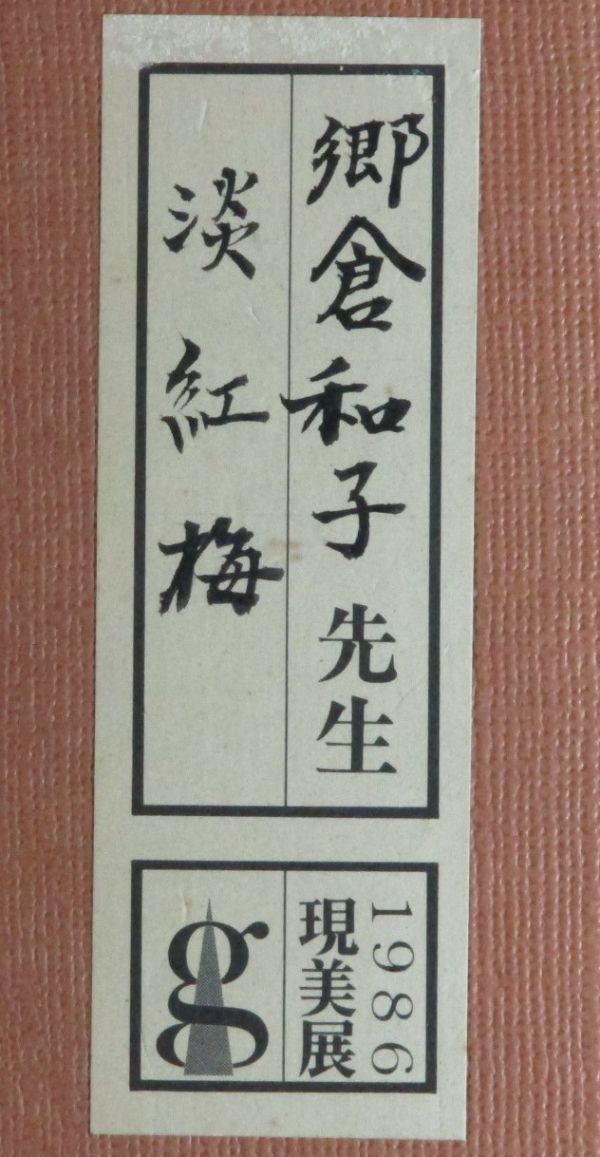 郷倉和子先生
淡紅梅
1986
現美展
g